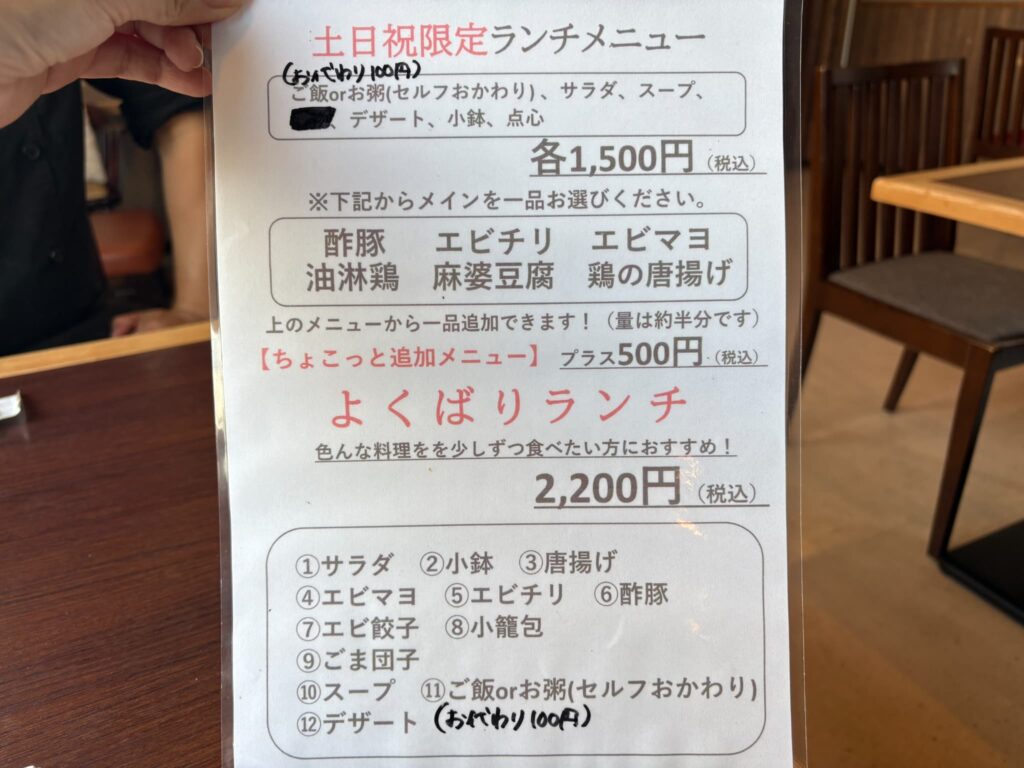 土日祝限定ランチメニュー
(おかわり100円)
ご飯orお粥(セルフおかわり)、サラダ、スープ、
、デザート、小鉢、点心
各1,500円（税込）
※下記からメインを一品お選びください。
酢豚 エビチリ エビマヨ
油淋鶏 麻婆豆腐 鶏の唐揚げ
上のメニューから一品追加できます！（量は約半分です）
【ちょこっと追加メニュー】 プラス500円（税込）
よくばりランチ
色んな料理をを少しずつ食べたい方におすすめ！
2,200円（税込）
①サラダ ②小鉢 ③唐揚げ
④エビマヨ ⑤エビチリ ⑥酢豚
⑦エビ餃子 ⑧小籠包
⑨ごま団子
⑩スープ ⑪ご飯orお粥(セルフおかわり)
⑫デザート (おかわり100円)